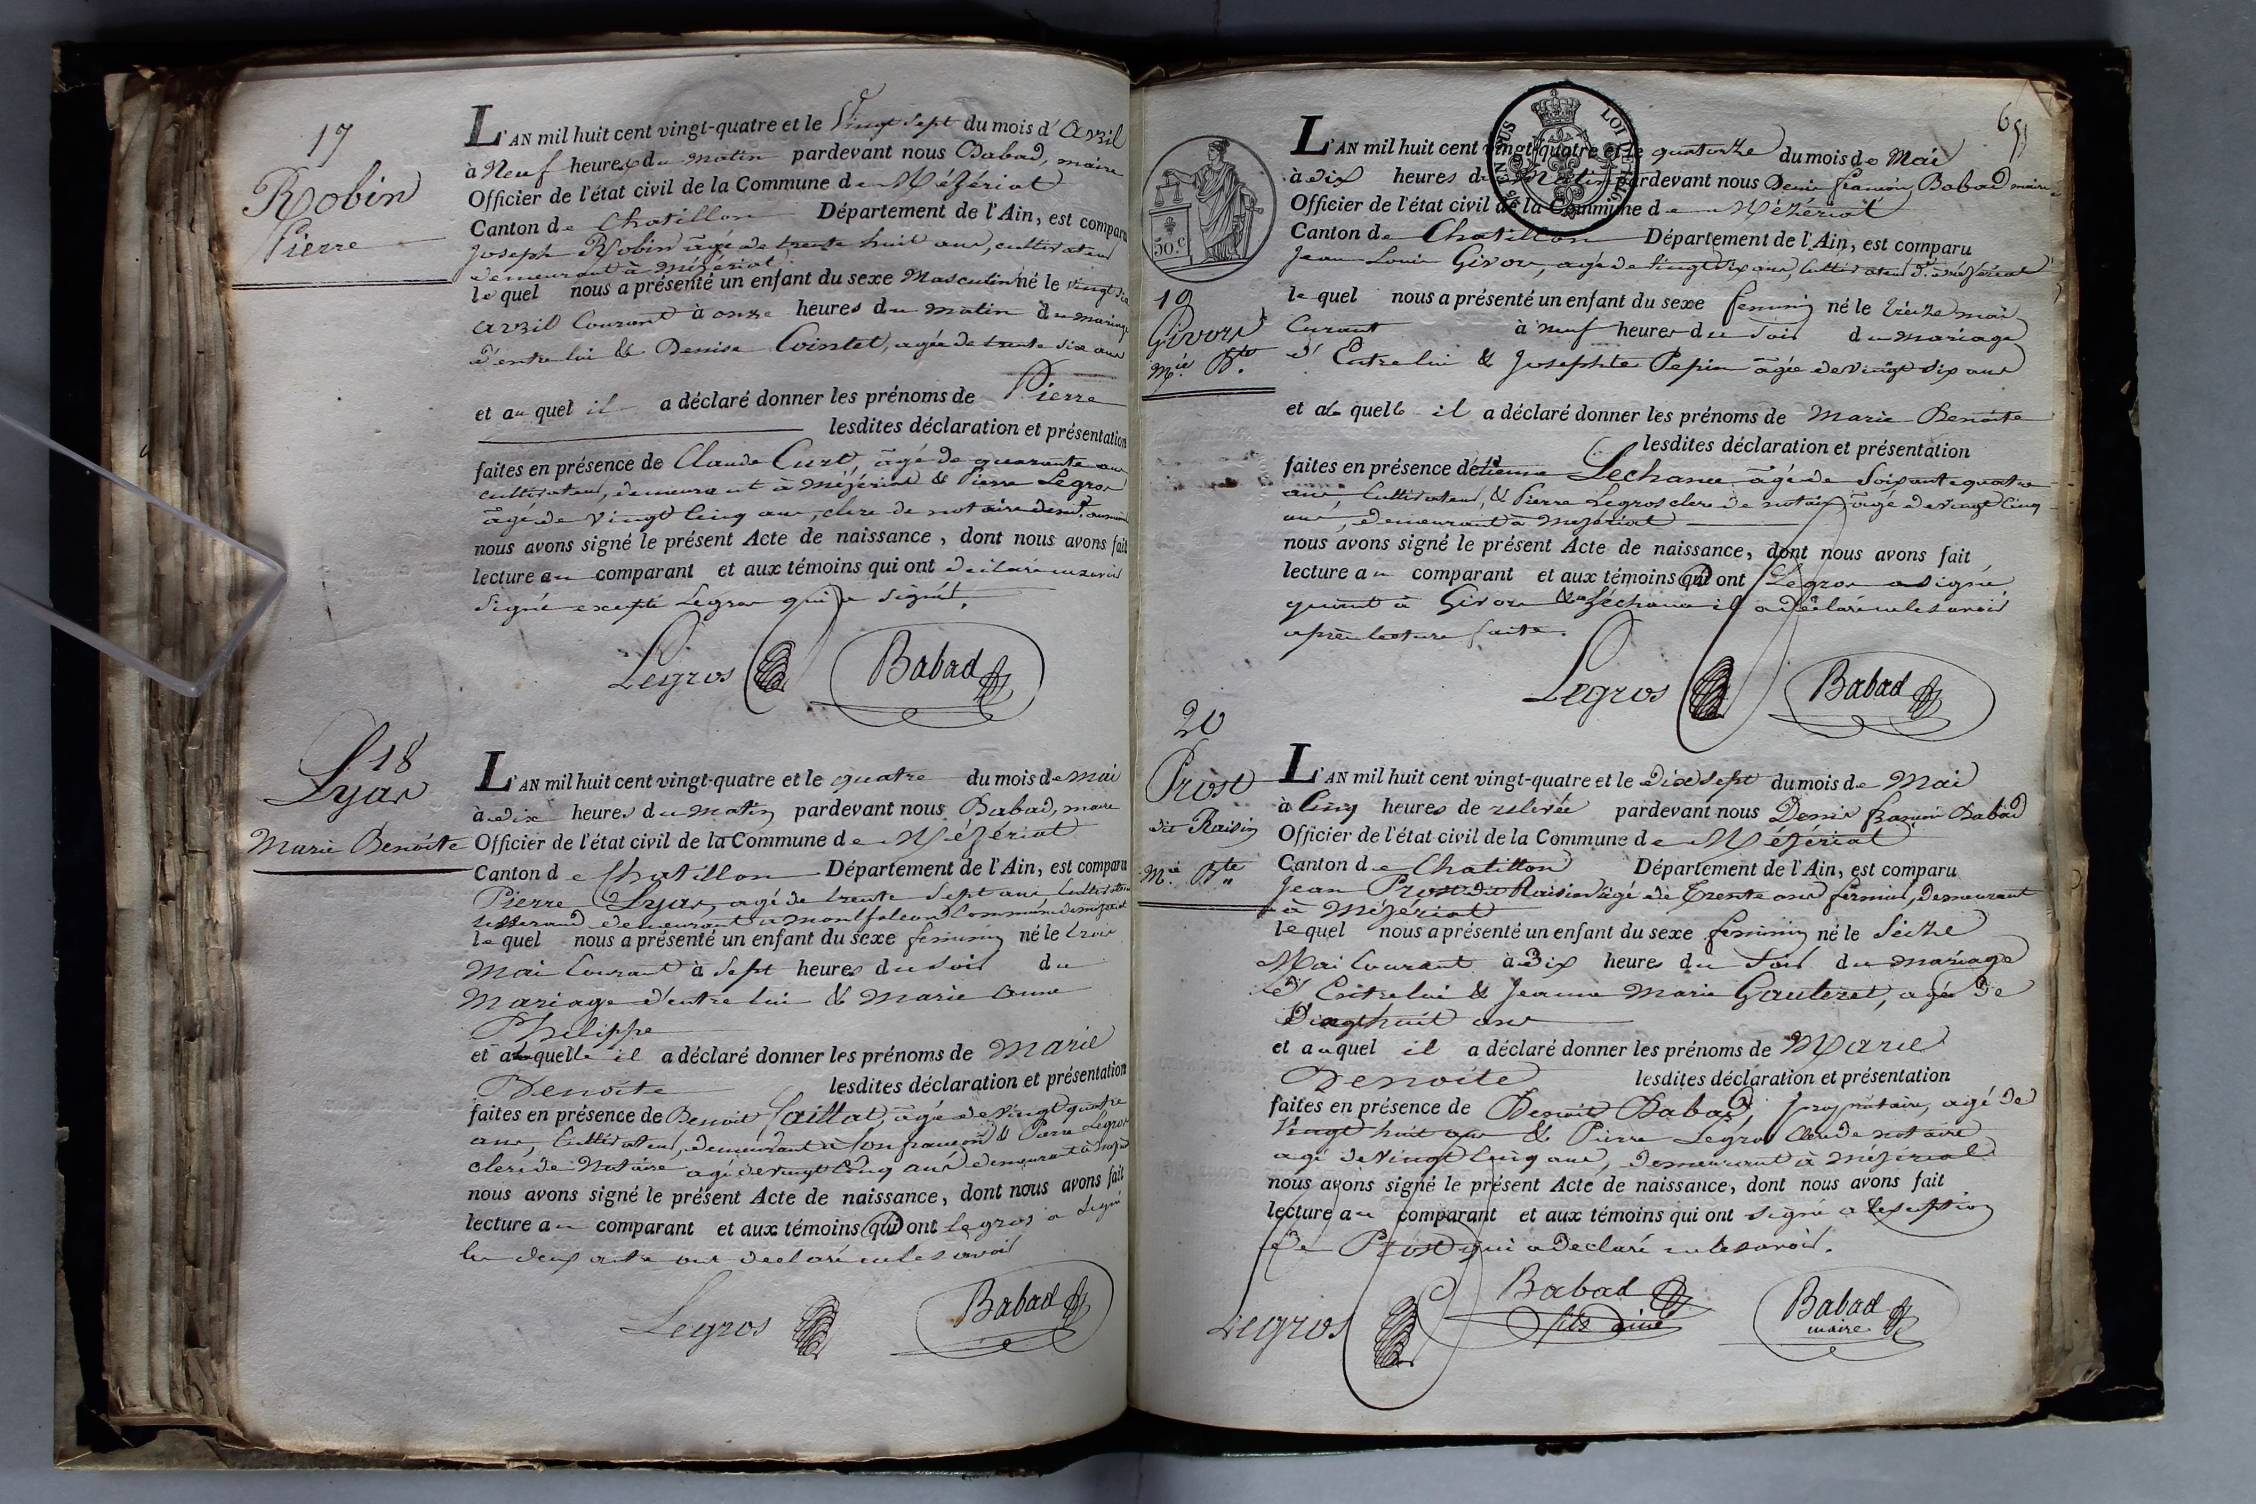 17
Robin
Pierre
L'AN mil huit cent vingt-quatre et le Vingt sept du mois d'avril
à Neuf heures du matin pardevant nous Babad, maire
Officier de l'état civil de la Commune de Mézériat
Canton de Chatillon Département de l'Ain, est comparu
Joseph Robin âgé de trente huit ans, cultivateur
demeurant à Mézériat
lequel nous a présenté un enfant du sexe Masculin né le vingt six
avril Courant à onze heures du matin du mariage
d'entre lui & Denise Cointet, agée de trente six ans
et au quel il a déclaré donner les prénoms de Pierre
lesdites déclaration et présentation
faites en présence de Claude Curt, âgé de quarante ans
cultivateur, demeurant à Mézériat & Pierre Legros
âgé de vingt cinq ans, clerc de notaire
nous avons signé le présent Acte de naissance, dont nous avons fait
lecture au comparant et aux témoins qui ont déclaré ne savoir
signé excepté Legros qui a signé.
Legros Babad
18
Lyar
Marie Benoite
L'AN mil huit cent vingt-quatre et le quatre du mois de mai
à dix heures du matin pardevant nous Babad, maire
Officier de l'état civil de la Commune de Mézériat
Canton de Chatillon Département de l'Ain, est comparu
Pierre Lyar, agé de trente sept ans Cultivateur
tisserand demeurant a montfalcon Commune de mézériat
lequel nous a présenté un enfant du sexe feminin né le trois
Mai Courant à sept heures du soir du
Mariage d'entre lui & Marie Anne
Philippe
et a la quelle il a déclaré donner les prénoms de Marie
Benoite lesdites déclaration et présentation
faites en présence de Benoit Taillat, âgé de vingt quatre
ans, Cultivateur, demeurant à & Pierre Legros
clerc de Notaire agé de vingt cinq ans demeurant à
nous avons signé le présent Acte de naissance, dont nous avons fait
lecture au comparant et aux témoins qui ont legros a signé
les deux autre ont declaré ne le savoir
Legros Babad
65
EN SUS LOI DE 1816
50.c
19
Givors
Mie Bte.
L'AN mil huit cent vingt-quatre et le quatorze du mois de Mai
à dix heures du Matin pardevant nous Denis francois Babad maire
Officier de l'état civil de la Commune de Mézériat
Canton de Chatillon Département de l'Ain, est comparu
Jean Louis Givor, agé de vingt six ans, Cultivateur dt. à Mézériat
lequel nous a présenté un enfant du sexe feminin né le treize mai
Curant à neuf heures du soir du mariage
d'Entre lui & Josephte Pepin âgée de vingt six ans
et à la quelle il a déclaré donner les prénoms de Marie Benoite
lesdites déclaration et présentation
faites en présence d'étienne Lechana âgé de Soixante quatre
ans Cultivateur, & Pierre Legros clerc de notaire âgé de vingt cinq
ans, demeurant à Mézériat
nous avons signé le présent Acte de naissance, dont nous avons fait
lecture au comparant et aux témoins qui ont Legros a signé
quant à Givor & Léchana il a déclaré ne le savoir
après lecture faite.
Legros Babad
20
Prost
dit Raisin
Mie Bte
L'AN mil huit cent vingt-quatre et le Dix sept du mois de Mai
à Cinq heures de relevée pardevant nous Denis francois Babad
Officier de l'état civil de la Commune de Mézériat
Canton de Chatillon Département de l'Ain, est comparu
Jean Prost dit Raisin âgé de Trente ans fermier, Demeurant
à Mézériat
lequel nous a présenté un enfant du sexe feminin né le Seize
Mai Courant à Dix heures du Soir du mariage
d'Entre lui & Jeanne Marie Gauteret, agée De
Vingt huit ans
et au quel il a déclaré donner les prénoms de Marie
Benoite lesdites déclaration et présentation
faites en présence de Benoit Babad, propriétaire, agé de
Vingt huit ans & Pierre Legros Clerc de notaire
agé de vingt Cinq ans, demeurant à Mézériat
nous avons signé le présent Acte de naissance, dont nous avons fait
lecture au comparant et aux témoins qui ont signé a l'exception
de Prost qui a declaré ne le savoir.
Legros Babad fils ainé Babad maire